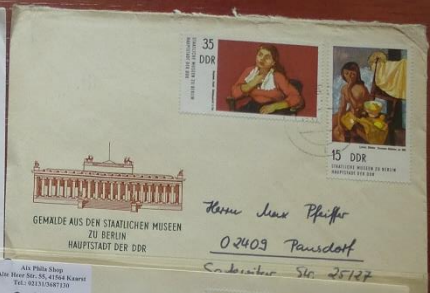 35
DDR
STAATLICHE MUSEEN
ZU BERLIN
HAUPTSTADT DER DDR
15 DDR
STAATLICHE MUSEEN ZU BERLIN
HAUPTSTADT DER DDR
GEMÄLDE AUS DEN STAATLICHEN MUSEEN
ZU BERLIN
HAUPTSTADT DER DDR
Herrn Max Pfeiffer
02409 Pausdorf
Str. 25/27
Aix Phila Shop
Heer Str. 55, 41564 Kaarst
Tel.: 02131/3687130